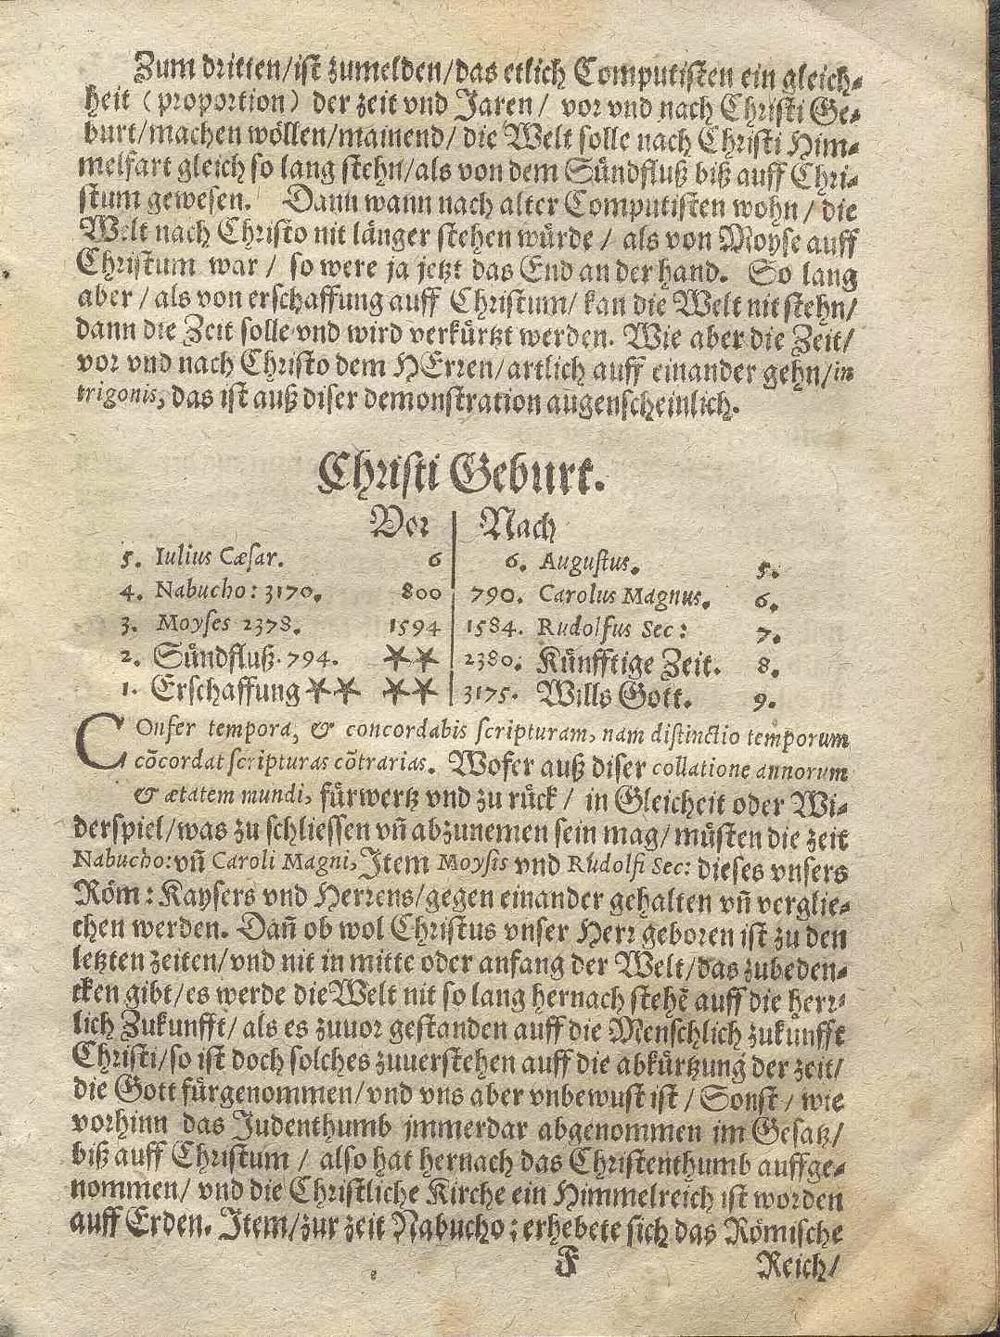 Zum dritten/ist zumelden/das etlich Computisten ein gleich-
heit (proportion) der zeit vnd Jaren/ vor vnd nach Christi Ge-
burt/machen wöllen/mainend/ die Welt solle nach Christi Him-
melfart gleich so lang stehn/als von dem Sündfluß biß auff Chri-
stum gewesen. Dann wann nach alter Computisten wohn/ die
Welt nach Christo nit länger stehen würde/ als von Moyse auff
Christum war/ so were ja jetzt das End an der hand. So lang
aber/als von erschaffung auff Christum/ kan die Welt nit stehn/
dann die Zeit solle vnd wird verkürtzt werden. Wie aber die Zeit/
vor vnd nach Christo dem HErren/artlich auff einander gehn/in
trigonis, das ist auß diser demonstration augenscheinlich.
Christi Geburt.
Vor | Nach
5. Iulius Cæsar. 6 | 6. Augustus. 5.
4. Nabucho: 3170. 800 | 790. Carolus Magnus. 6.
3. Moyses 2378. 1594 | 1584. Rudolfus Sec: 7.
2. Sündfluß. 794. ** | 2380. Künfftige Zeit. 8.
1. Erschaffung ** ** | 3175. Wills Gott. 9.
COnfer tempora, & concordabis scripturam, nam distinctio temporum
cõcordat scripturas cõtrarias. Wofer auß diser collatione annorum
& ætatem mundi, fürwertz vnd zu rück/ in Gleicheit oder Wi-
derspiel/was zu schliessen vñ abzunemen sein mag/müsten die zeit
Nabucho: vñ Caroli Magni, Item Moysis vnd Rudolfi Sec: dieses vnsers
Röm: Kaysers vnd Herrens/gegen einander gehalten vñ verglie-
chen werden. Dañ ob wol Christus vnser Herr geboren ist zu den
letzten zeiten/vnd nit in mitte oder anfang der Welt/das zubeden-
cken gibt/es werde die Welt nit so lang hernach stehẽ auff die herr-
lich Zukunfft/ als es zuuor gestanden auff die Menschlich zukunfft
Christi/so ist doch solches zuuerstehen auff die abkürtzung der zeit/
die Gott fürgenommen/vnd vns aber vnbewust ist/ Sonst/ wie
vorhinn das Judenthumb jmmerdar abgenommen im Gesatz/
biß auff Christum/ also hat hernach das Christenthumb auffge-
nommen/ vnd die Christliche Kirche ein Himmelreich ist worden
auff Erden. Item/zur zeit Nabucho: erhebete sich das Römische
F Reich/